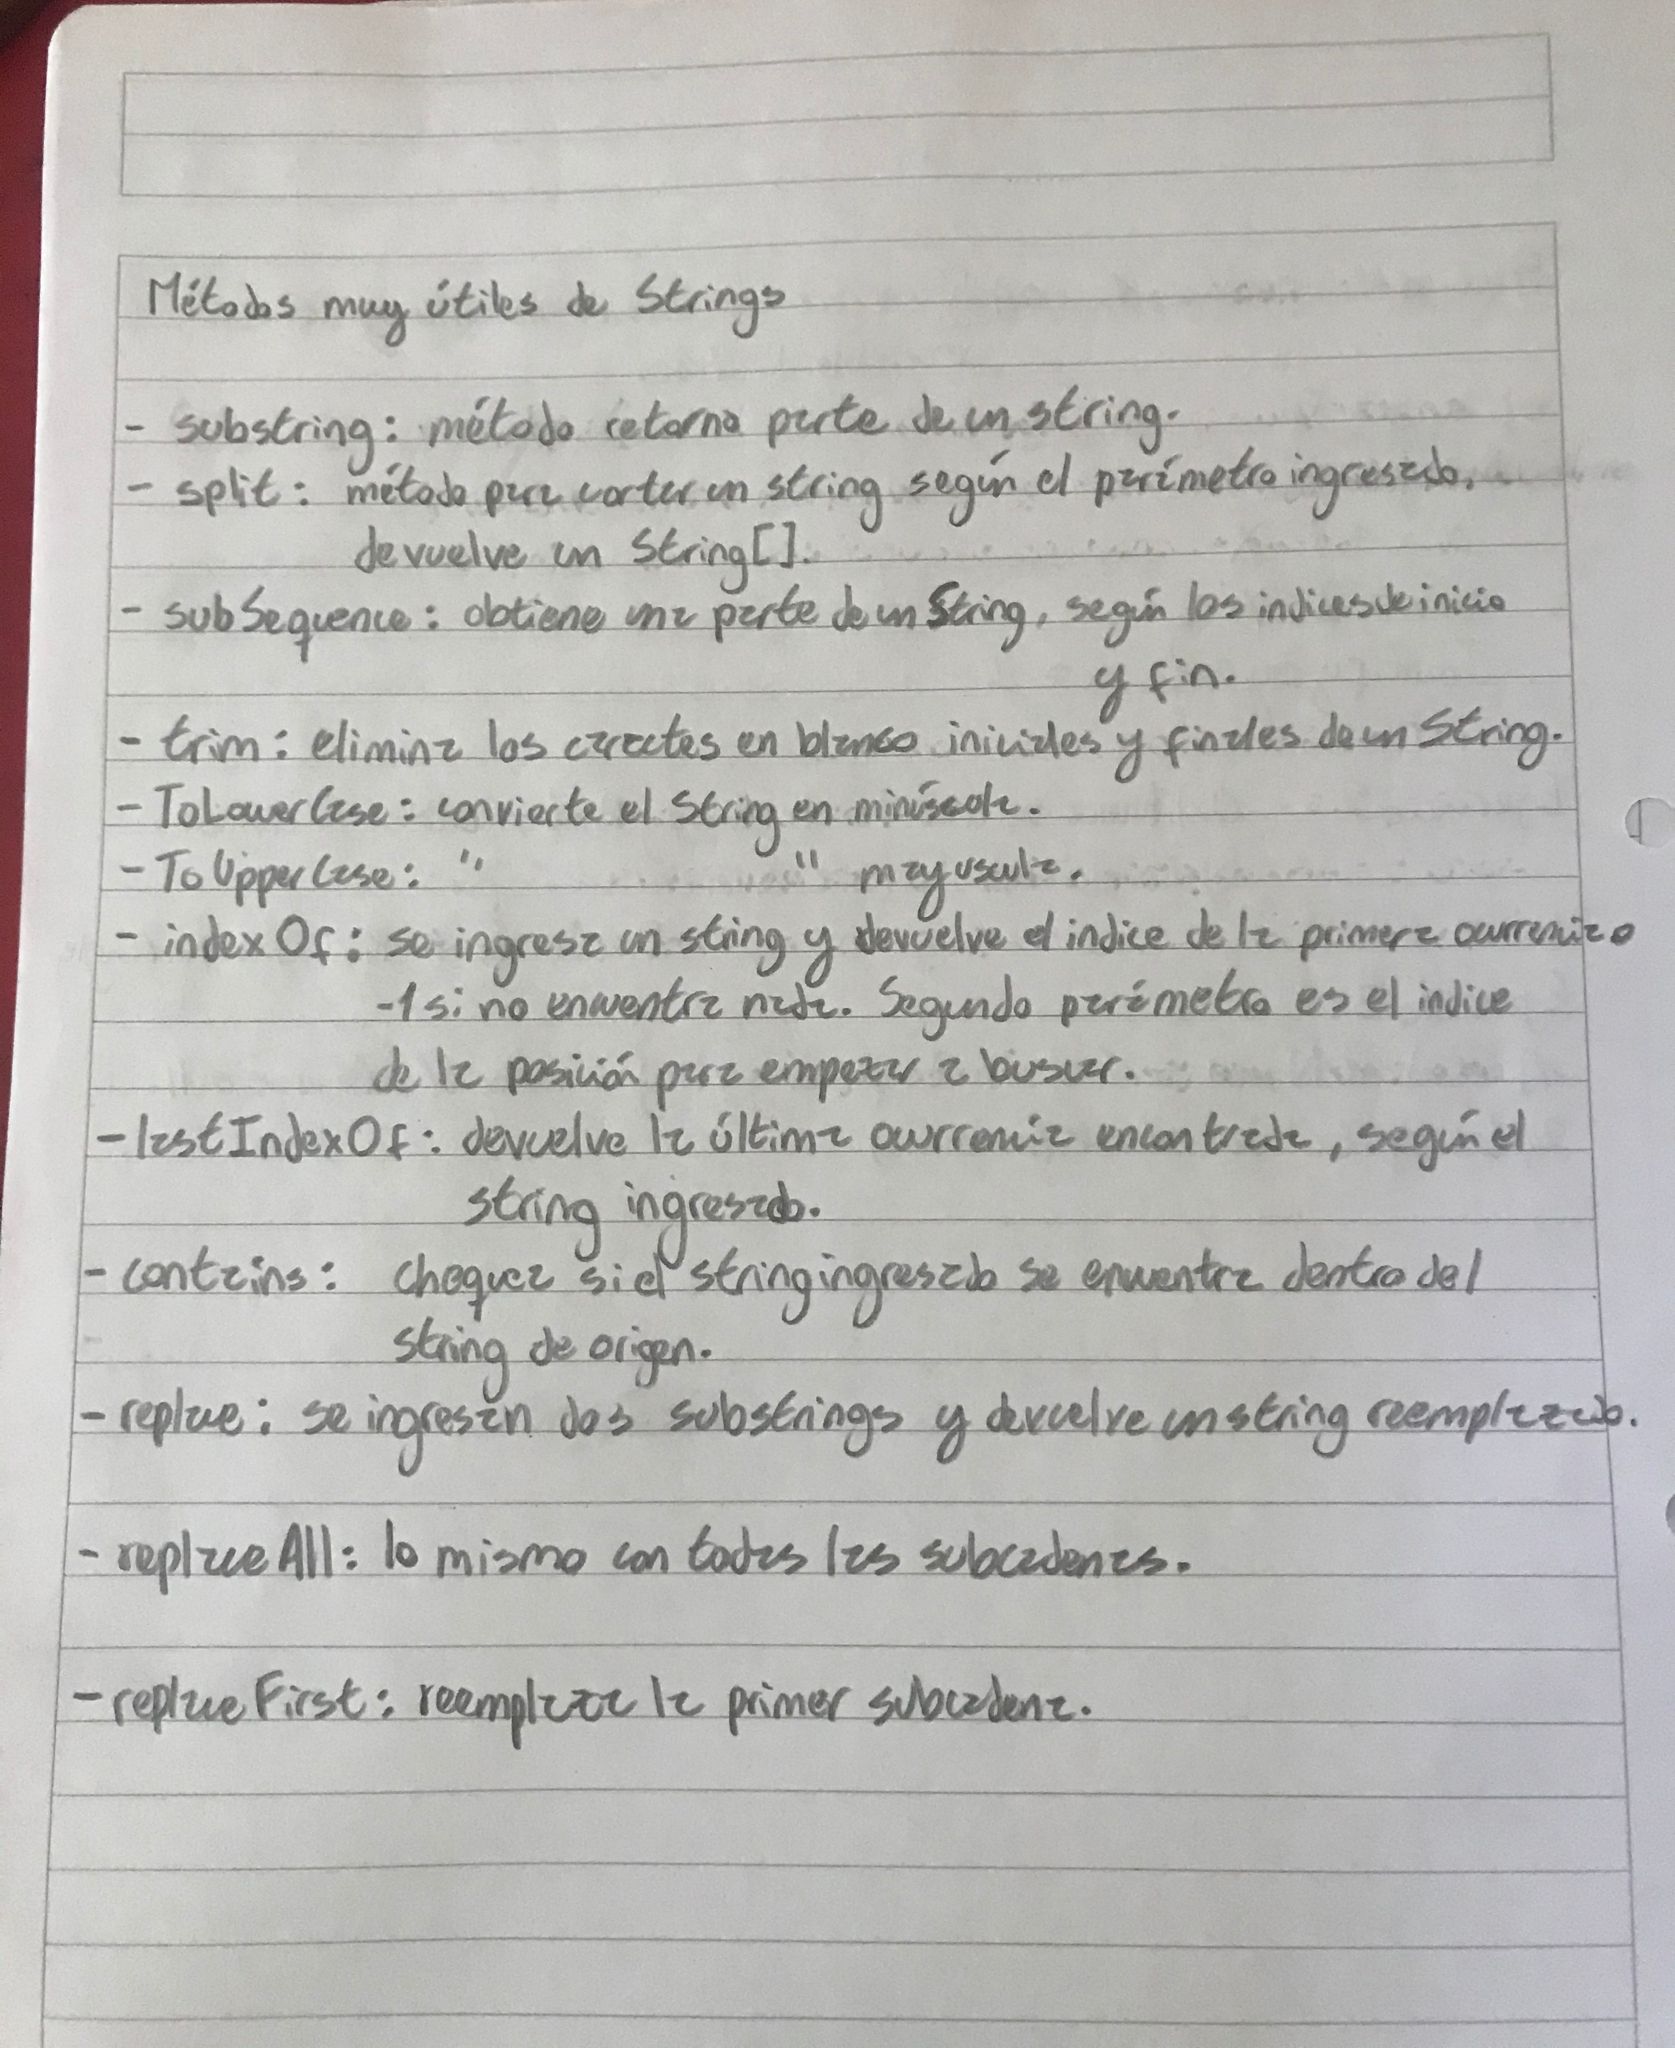 Métodos muy útiles de Strings
- substring: método retorna parte de un string.
- split: método para cortar un string según el parámetro ingresado,
devuelve un String[].
- subSequence: obtiene una parte de un String, según los indices de inicio
y fin.
- trim: elimina los caractes en blanco iniciales y finales de un String.
- ToLowerCase: convierte el String en minúscula.
- ToUpperCase: " " mayuscula.
- indexOf: se ingresa un string y devuelve el indice de la primera ocurrencia o
-1 si no encuentra nada. Segundo parámetro es el indice
de la posición para empezar a buscar.
- lastIndexOf: devuelve la última ocurrencia encontrada, según el
string ingresado.
- contains: chequea si el string ingresado se encuentra dentro del
string de origen.
- replace: se ingresan dos substrings y devuelve un string reemplazado.
- replaceAll: lo mismo con todas las subcadenas.
- replaceFirst: reemplaza la primer subcadena.